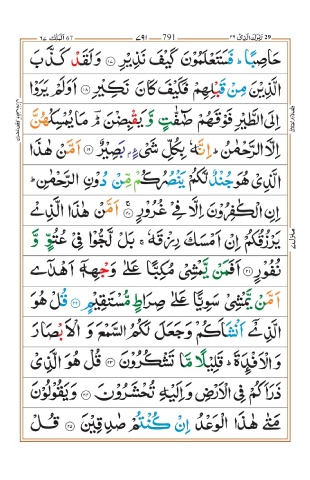 ٢٩ تَبٰرَكَ الَّذِىْ 29 791 ٧٩١ ٦٧ اَلْمُلْك 67
حَاصِبًا ؕ فَسَتَعْلَمُوْنَ كَيْفَ نَذِيْرِ ﴿۱۷﴾ وَلَقَدْ كَذَّبَ
الَّذِيْنَ مِنْ قَبْلِهِمْ فَكَيْفَ كَانَ نَكِيْرِ ﴿۱۸﴾ اَوَلَمْ يَرَوْا
اِلَى الطَّيْرِ فَوْقَهُمْ صٰٓفّٰتٍ وَّ يَقْبِضْنَ ؔۘ مَا يُمْسِكُهُنَّ
اِلَّا الرَّحْمٰنُ ؕ اِنَّهٗ بِكُلِّ شَىْءٍۢ بَصِيْرٌ ﴿۱۹﴾ اَمَّنْ هٰذَا
الَّذِىْ هُوَ جُنْدٌ لَّكُمْ يَنْصُرُكُمْ مِّنْ دُوْنِ الرَّحْمٰنِ ؕ
اِنِ الْكٰفِرُوْنَ اِلَّا فِىْ غُرُوْرٍ ﴿۲۰﴾ اَمَّنْ هٰذَا الَّذِىْ
يَرْزُقُكُمْ اِنْ اَمْسَكَ رِزْقَهٗ ۚ بَلْ لَّجُّوْا فِىْ عُتُوٍّ وَّ
نُفُوْرٍ ﴿۲۱﴾ اَفَمَنْ يَّمْشِىْ مُكِبًّا عَلٰى وَجْهِهٖۤ اَهْدٰٓى
اَمَّنْ يَّمْشِىْ سَوِيًّا عَلٰى صِرَاطٍ مُّسْتَقِيْمٍ ﴿۲۲﴾ قُلْ هُوَ
الَّذِىْۤ اَنْشَاَكُمْ وَجَعَلَ لَكُمُ السَّمْعَ وَ الْاَبْصَارَ
وَالْاَفْـِٕدَةَ ؕ قَلِيْلًا مَّا تَشْكُرُوْنَ ﴿۲۳﴾ قُلْ هُوَ الَّذِىْ
ذَرَاَكُمْ فِى الْاَرْضِ وَاِلَيْهِ تُحْشَرُوْنَ ﴿۲۴﴾ وَيَقُوْلُوْنَ
مَتٰى هٰذَا الْوَعْدُ اِنْ كُنْتُمْ صٰدِقِيْنَ ﴿۲۵﴾ قُلْ